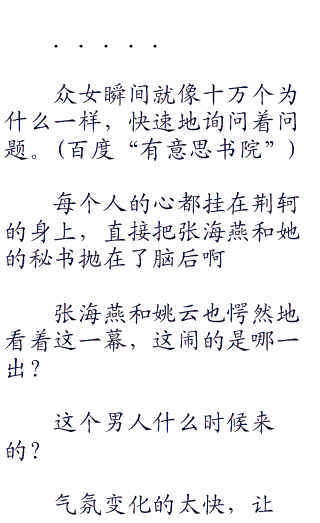 . . . . .
众女瞬间就像十万个为
什么一样，快速地询问着问
题。(百度“有意思书院”)
每个人的心都挂在荆轲
的身上，直接把张海燕和她
的秘书抛在了脑后啊
张海燕和姚云也愕然地
看着这一幕，这闹的是哪一
出？
这个男人什么时候来
的？
气氛变化的太快，让